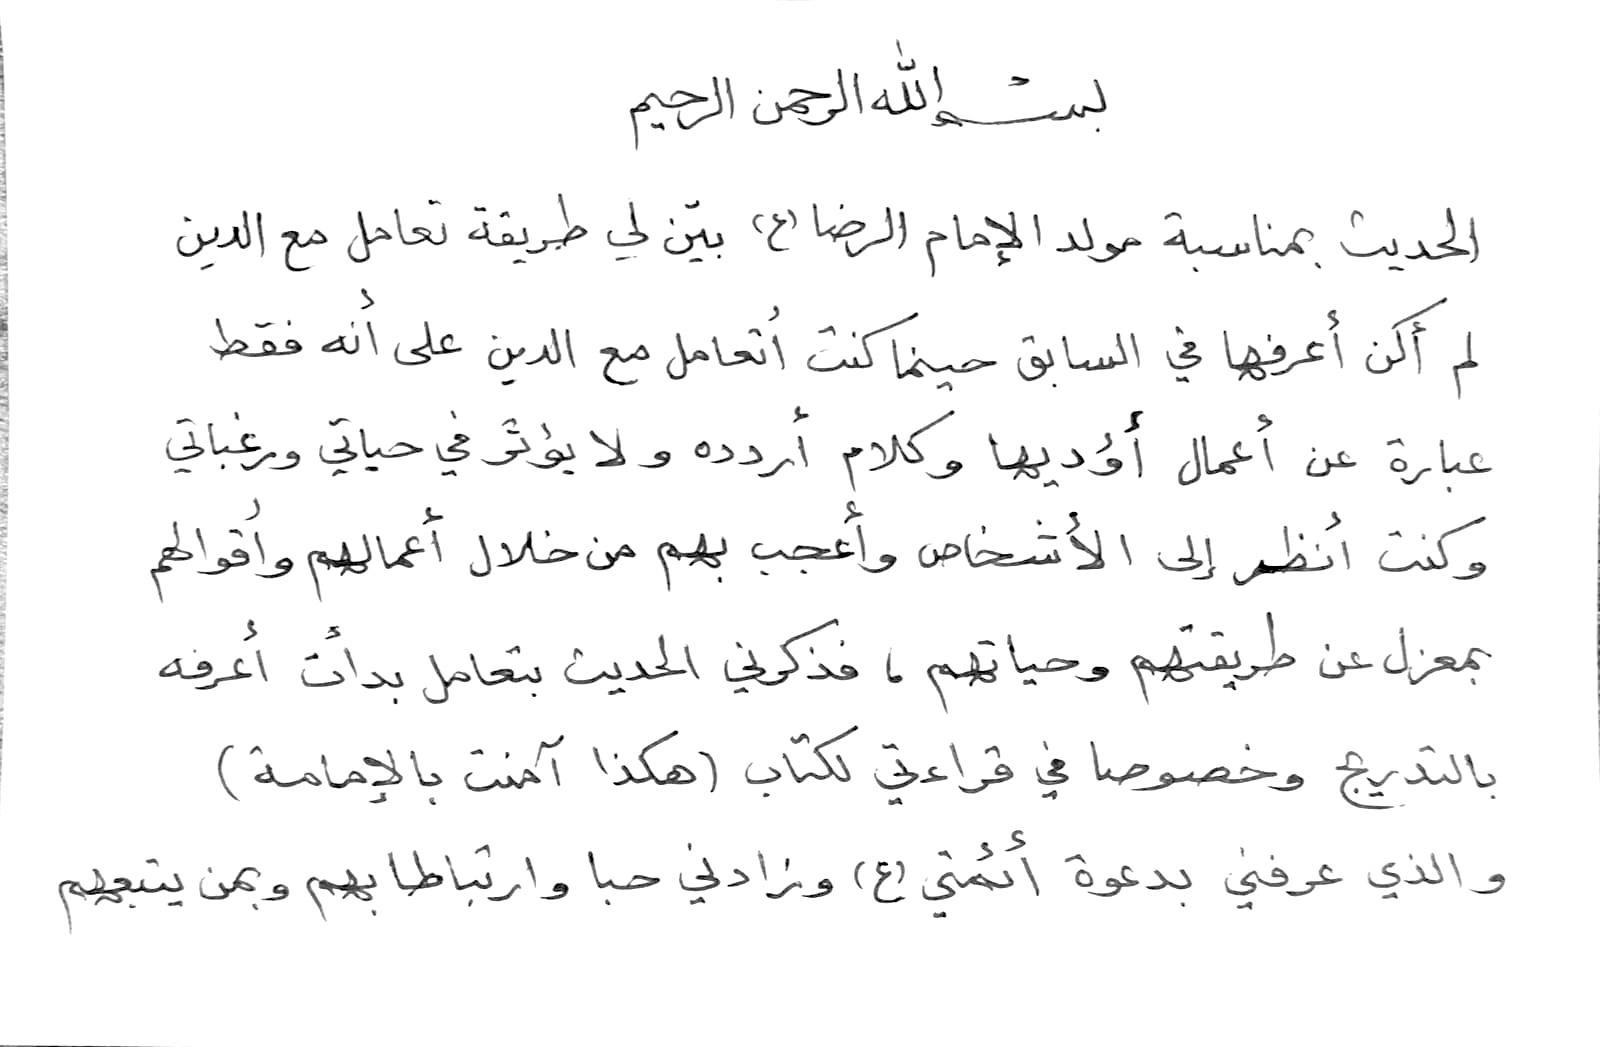 بسم الله الرحمن الرحيم
الحديث بمناسبة مولد الإمام الرضا (ع) بيّن لي طريقة تعامل مع الدين
لم أكن أعرفها في السابق حينما كنت أتعامل مع الدين على أنه فقط
عبارة عن أعمال أؤديها وكلام أردده ولا يؤثر في حياتي ورغباتي
وكنت أنظر إلى الأشخاص وأعجب بهم من خلال أعمالهم وأقوالهم
بمعزل عن طريقتهم وحياتهم ، فذكرني الحديث بتعامل بدأت أعرفه
بالتدريج وخصوصا في قراءتي لكتاب (هكذا آمنت بالإمامة)
والذي عرفني بدعوة أئمتي (ع) وزادني حبا وارتباطا بهم وبمن يتبعهم